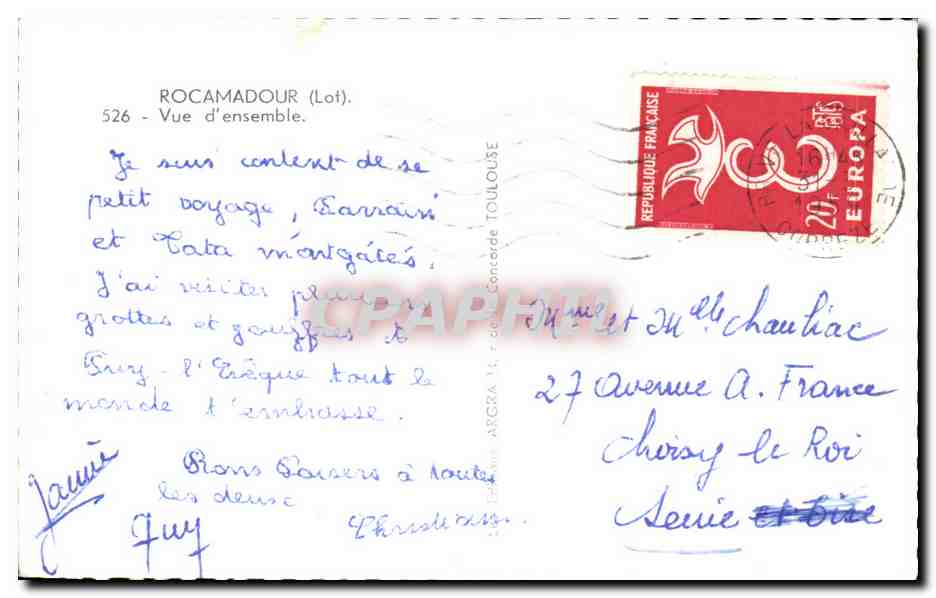 ROCAMADOUR (Lot).
526 - Vue d'ensemble.
Je suis content de se
petit voyage, Parrain
et Tata m'ont gatés.
J'ai visiter plusieurs
grottes et gouffres à
Puy-l'Evêque tout le
monde t'embrasse.
Bons Baisers à toutes
les deux
Janine
Guy
Christiane.
ARGRA
Concorde TOULOUSE
REPUBLIQUE FRANÇAISE
20F
EUROPA
16 H
CORREZE
Mme et Melle Chauliac
27 Avenue A. France
Choisy le Roi
Seine et Oise
CPAPHIL